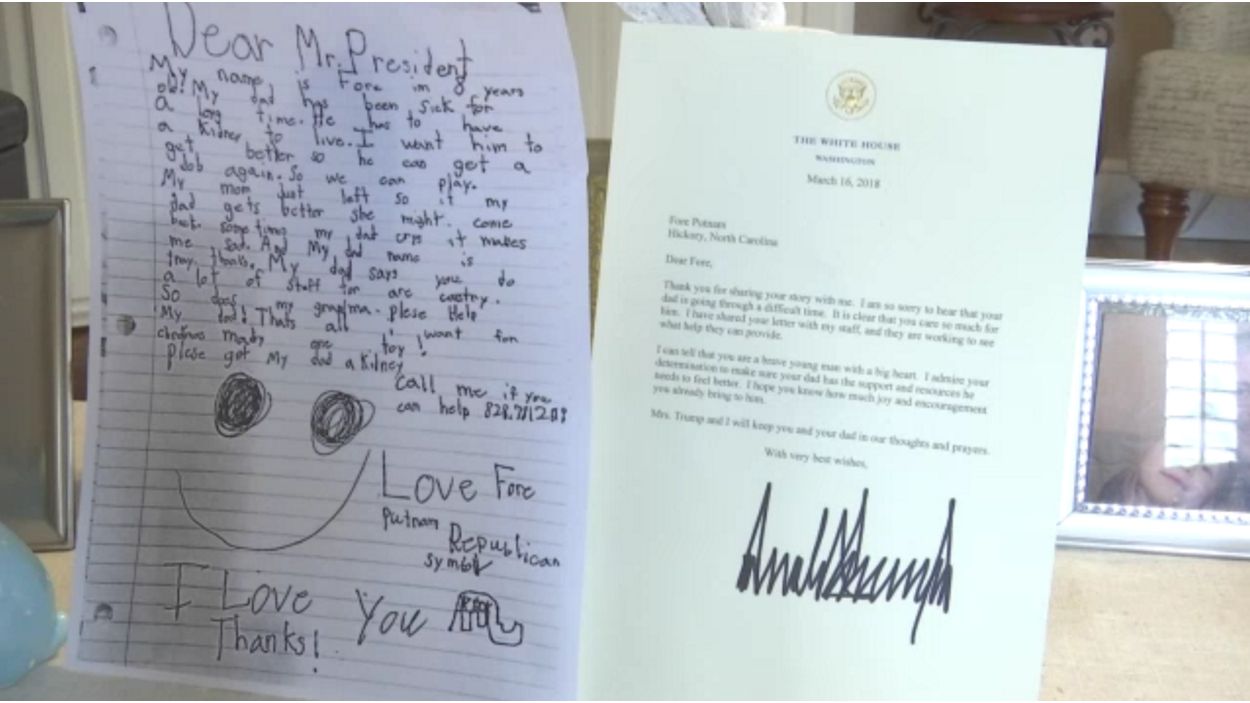 Dear Mr. President
My name is Fore im 8 years
old! My dad has been sick for
a long time. He has to have
a kidney to live. I want him to
get better so he can get a
Job again. So we can play.
My mom just left so if my
dad gets better she might. come
back. some times my dad crys it makes
me sad. And My dad name is
thanks. My dad says you do
a lot of stuff for are
So does my Plese Help
My dad! Thats all i want for
maby one toy!
plese get My dad a kidney
call me if you
can help
Love Fore
Putnam
Republican
symbl
I Love You
Thanks!
THE WHITE HOUSE
WASHINGTON
March 16, 2018
Fore Putnam
Hickory, North Carolina
Dear Fore,
Thank you for sharing your story with me. I am so sorry to hear that your
dad is going through a difficult time. It is clear that you care so much for
him. I have shared your letter with my staff, and they are working to see
what help they can provide.
I can tell that you are a brave young man with a big heart. I admire your
determination to make sure your dad has the support and resources he
needs to feel better. I hope you know how much joy and encouragement
you already bring to him.
Mrs. Trump and I will keep you and your dad in our thoughts and prayers.
With very best wishes,